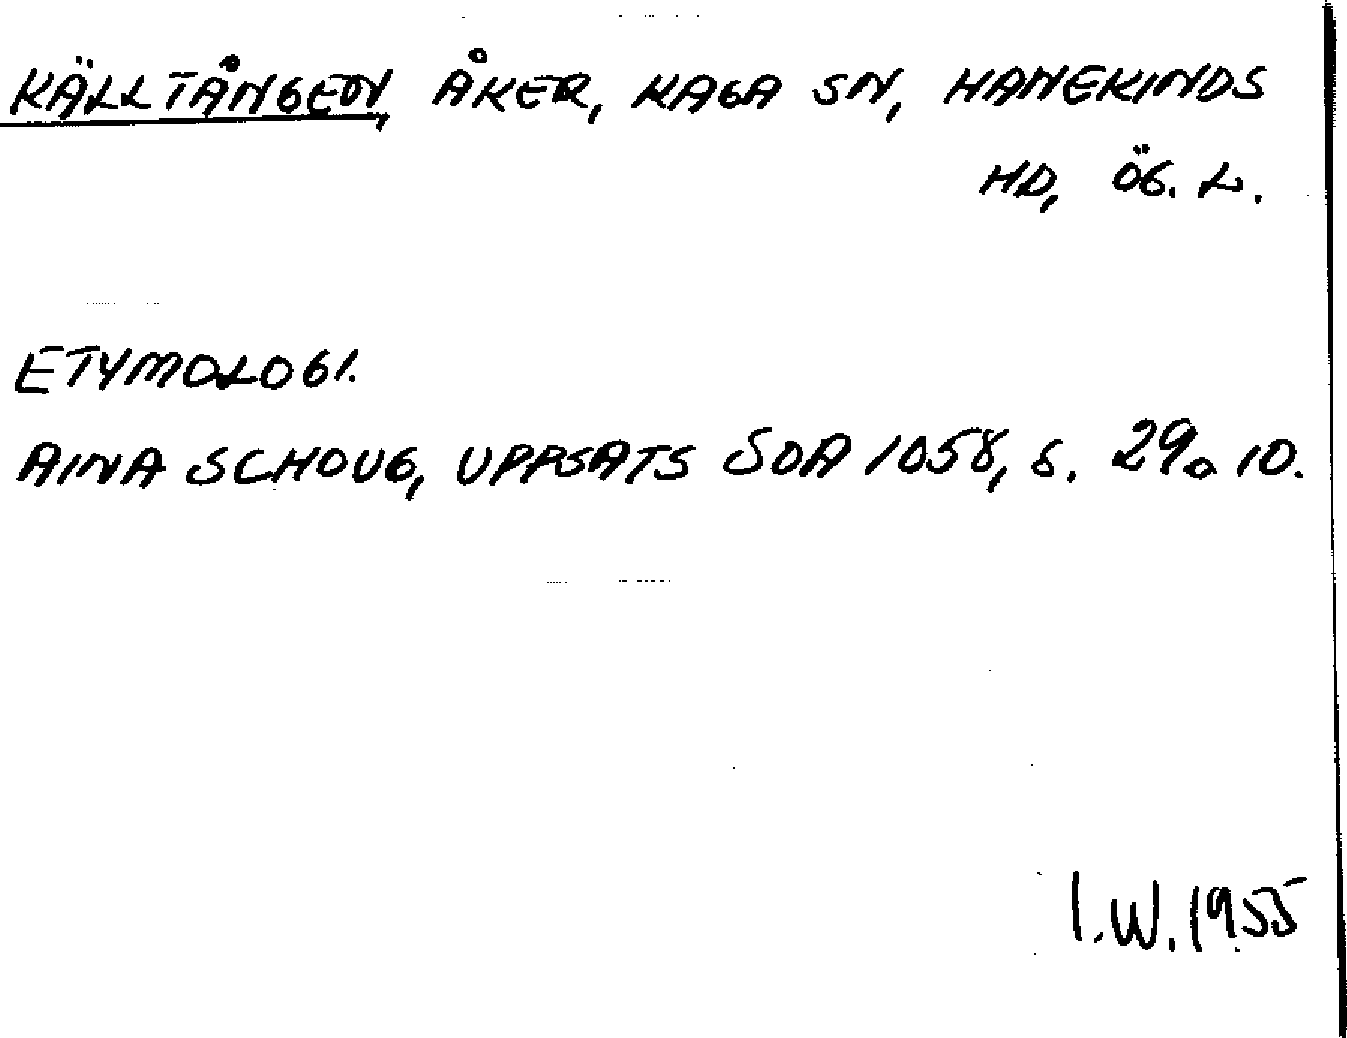 KÄLLTÅNGEN, ÅKER, KAGA SN, HANEKINDS
HD, ÖG. L.
ETYMOLOGI.
AINA SCHOUG, UPPSATS SOA 1058, S. 29 o 10.
I.W. 1955